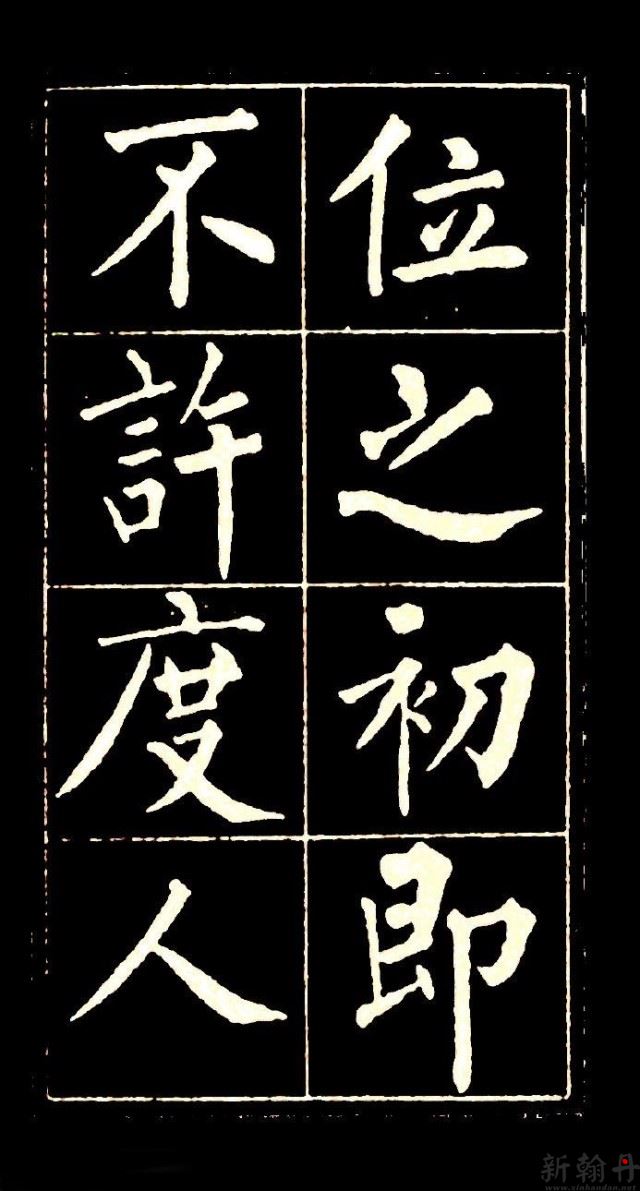 位之初即
不許度人
新翰丹
www.xinhandan.net